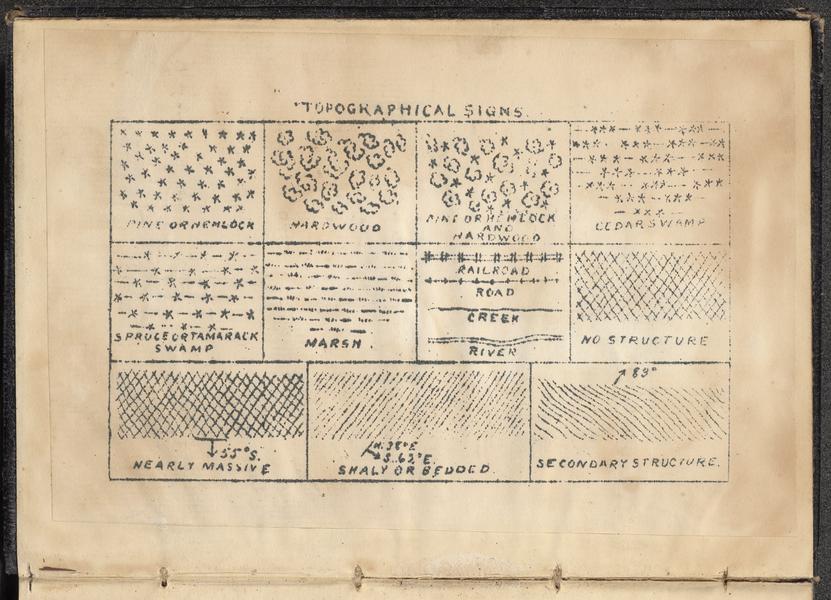 TOPOGRAPHICAL SIGNS.
PINE OR HEMLOCK
HARDWOOD
PINE OR HEMLOCK
AND
HARDWOOD
CEDAR SWAMP
SPRUCE OR TAMARACK
SWAMP
MARSH.
RAILROAD
ROAD
CREEK
RIVER
NO STRUCTURE
55°S.
NEARLY MASSIVE
N.38°E
S.62°E.
SHALY OR BEDDED.
83°
SECONDARY STRUCTURE.